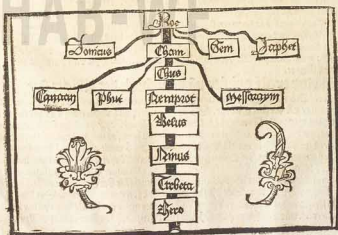 Noe
Ionicus Cham Sem Japhet
Chus
Canaan Phut Nemprot Messaraym
Belus
Ninus
Trebeta
Hero